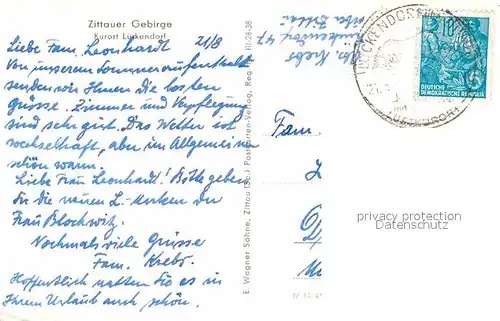 Zittauer Gebirge
Kurort Lückendorf
Liebe Fam. Leonhardt! 21/8
Von unserem Sommeraufenthalt
senden wir Ihnen die besten
Grüsse. Zimmer und Verpflegung
sind sehr gut. Das Wetter ist
wechselhaft, aber im Allgemeinen
schön warm.
Liebe Frau Leonhardt! Bitte geben
Sie die neuen L.-Marken der
Frau Blochwitz.
Nochmals viele Grüsse
Fam. Krebs.
Hoffentlich hatten Sie es in
Ihrem Urlaub auch schön.
E. Wagner Söhne, Zittau (Sa.) Postkarten-Verlag, Reg
HI-28-38
Krebs
Lückendorf 47
über Zittau
LÜCKENDORF
LUFTKURORT
DEUTSCHE
DEMOKRATISCHE REPUBLIK
Fam.
privacy protection
Datenschutz